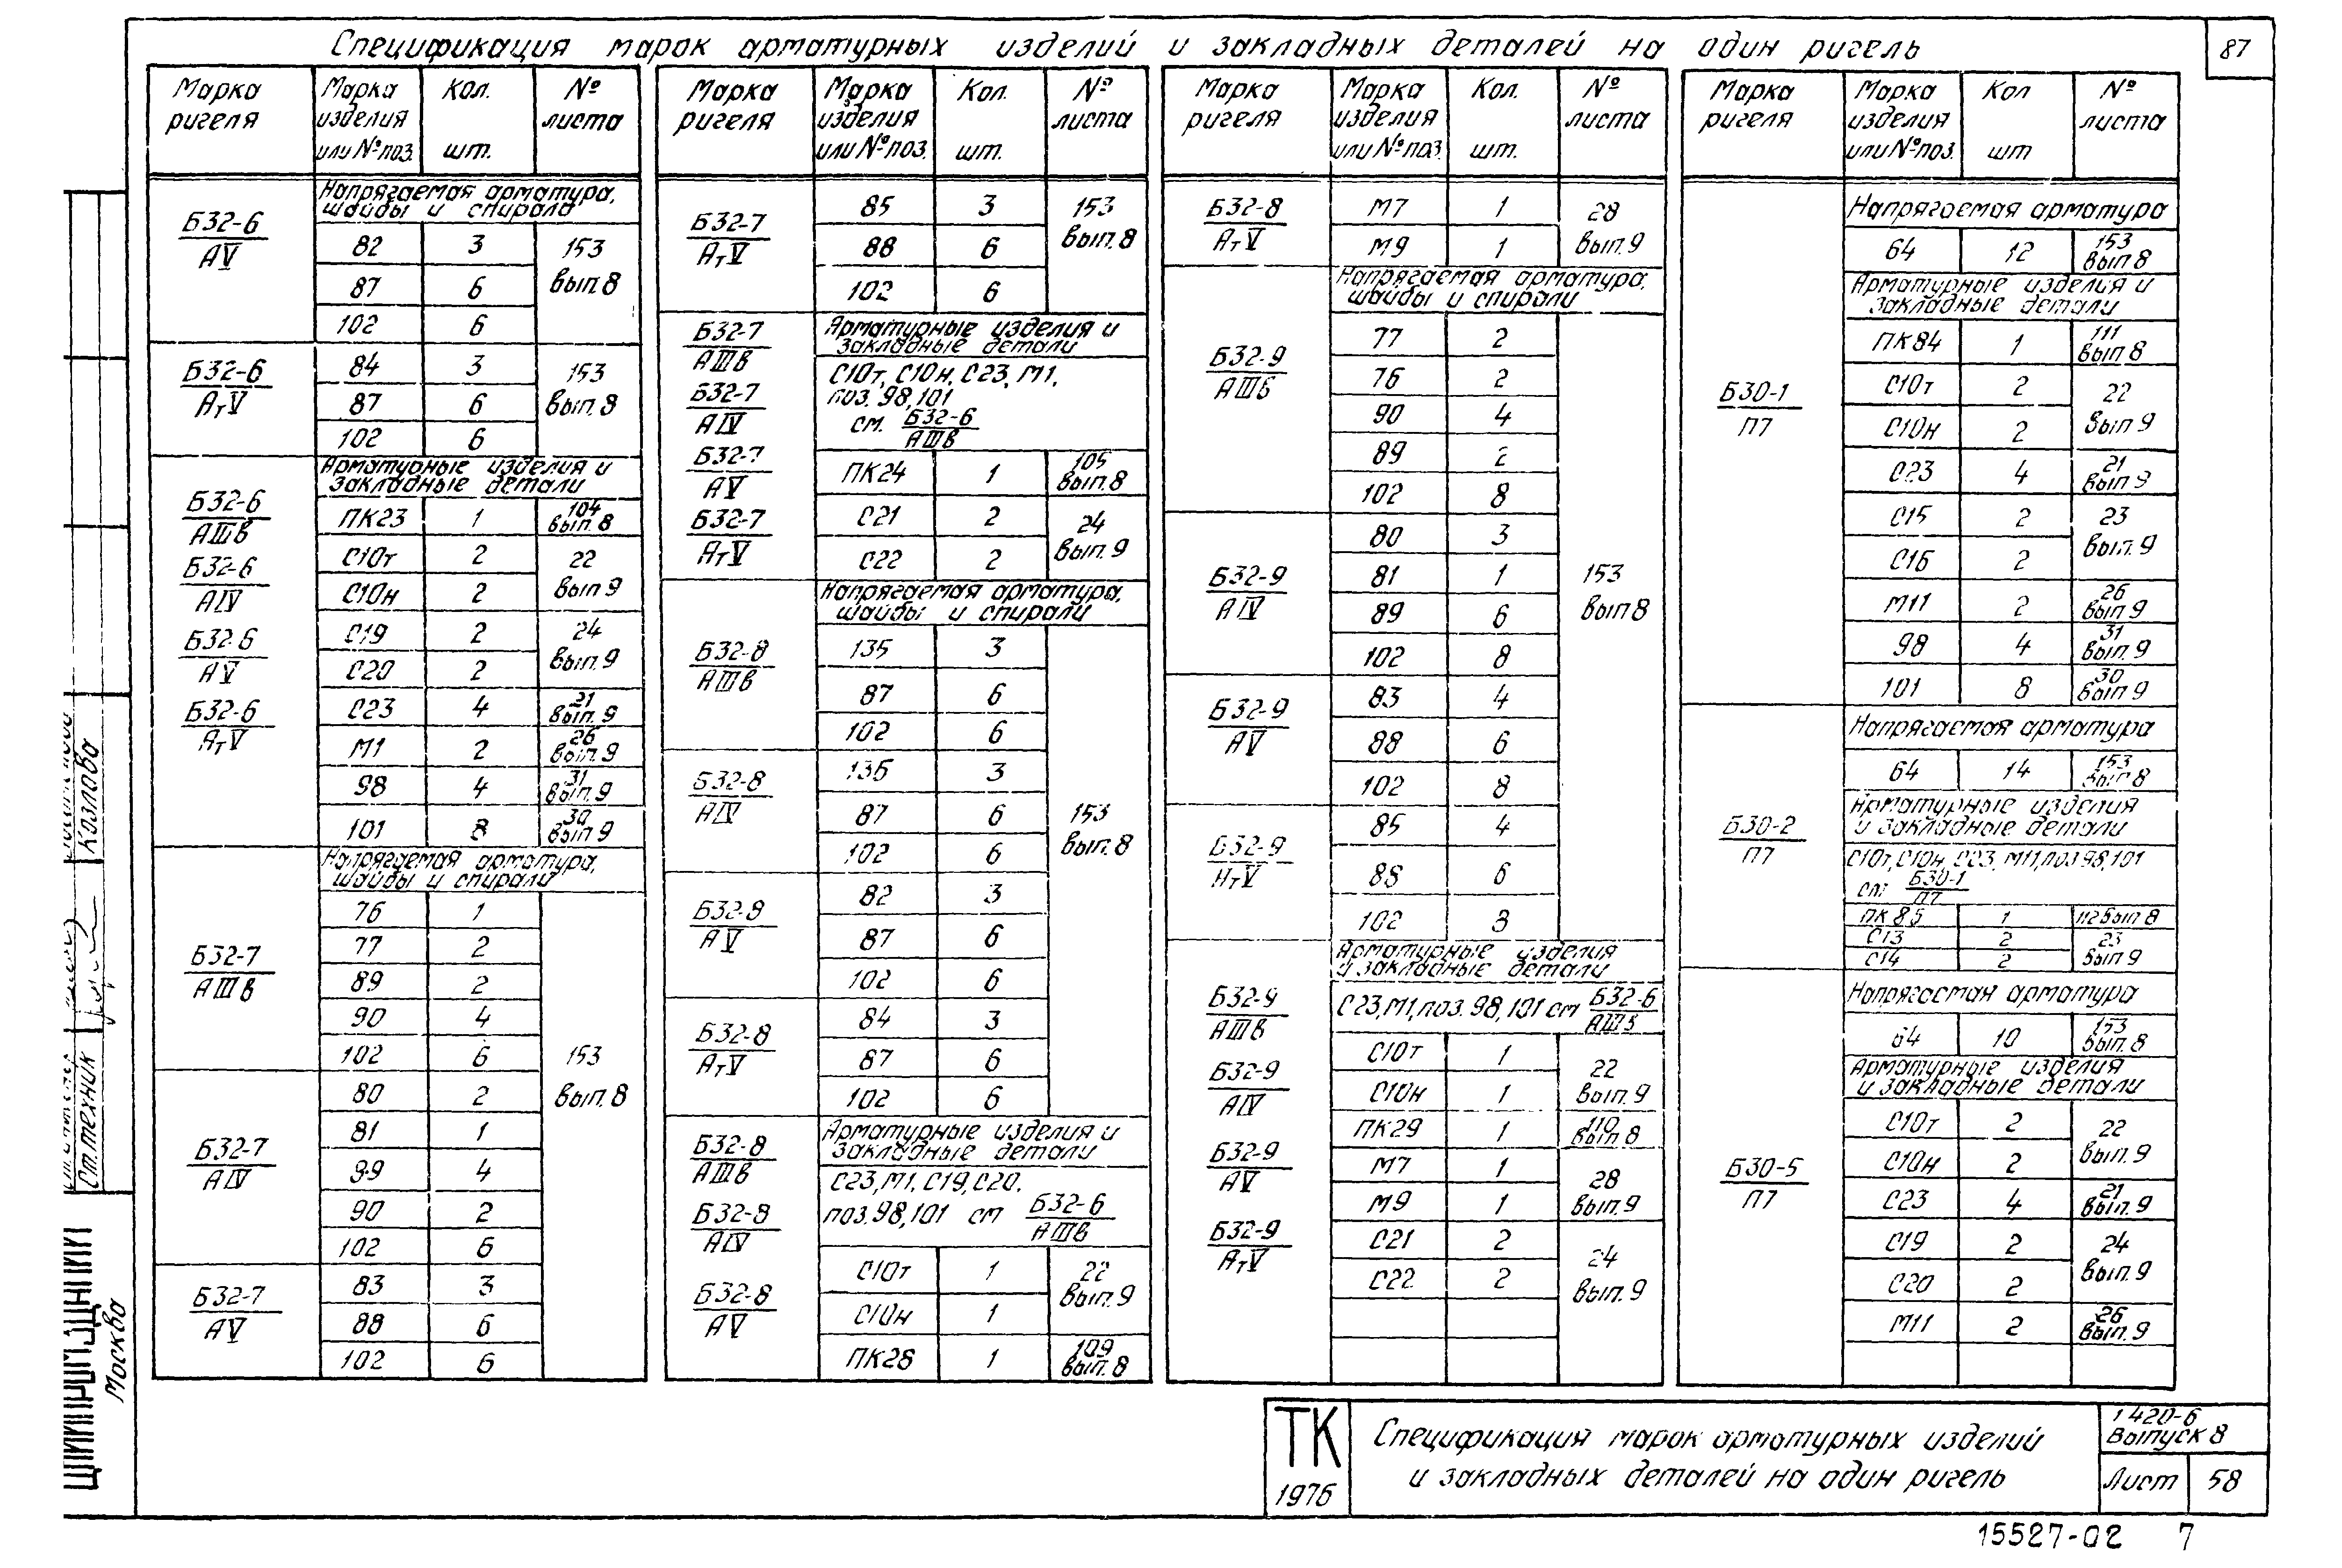 87
Спецификация марок арматурных изделий и закладных деталей на один ригель
Марка ригеля | Марка изделия или № поз. | Кол. шт. | № листа
Напрягаемая арматура, шайбы и спирали
Б32-6 АV
82 3
87 6
102 6
153 вып.8
Б32-6 АтV
84 3
87 6
102 6
153 вып.8
Арматурные изделия и закладные детали
Б32-6 АIIIв
Б32-6 АIV
Б32-6 АV
Б32-6 АтV
ПК23 1 104 вып.8
С10т 2
С10н 2
22 вып 9
С19 2
С20 2
24 вып.9
С23 4 21 вып.9
М1 2 26 вып.9
98 4 31 вып.9
101 8 30 вып 9
Напрягаемая арматура, шайбы и спирали
Б32-7 АIIIв
76 1
77 2
89 2
90 4
102 6
Б32-7 АIV
80 2
81 1
99 4
90 2
102 6
Б32-7 АV
83 3
88 6
102 6
153 вып.8
Марка ригеля | Марка изделия или № поз. | Кол. шт. | № листа
Б32-7 АтV
85 3
88 6
102 6
153 вып.8
Б32-7 АIIIв
Б32-7 АIV
Б32-7 АV
Б32-7 АтV
Арматурные изделия и закладные детали
С10т, С10н, С23, М1,
поз. 98, 101
см. Б32-6 АIIIв
ПК24 1 105 вып.8
С21 2
С22 2
24 вып.9
Напрягаемая арматура, шайбы и спирали
Б32-8 АIIIв
135 3
87 6
102 6
Б32-8 АIV
136 3
87 6
102 6
Б32-8 АV
82 3
87 6
102 6
Б32-8 АтV
84 3
87 6
102 6
153 вып.8
Арматурные изделия и закладные детали
Б32-8 АIIIв
Б32-8 АIV
Б32-8 АV
С23, М1, С19, С20,
поз. 98, 101 см Б32-6 АIIIв
С10т 1
С10н 1
22 вып.9
ПК28 1 109 вып.8
Марка ригеля | Марка изделия или № поз. | Кол. шт. | № листа
Б32-8 АтV
М7 1
М9 1
28 вып.9
Напрягаемая арматура, шайбы и спирали
Б32-9 АIIIв
77 2
76 2
90 4
89 2
102 8
Б32-9 АIV
80 3
81 1
89 6
102 8
Б32-9 АV
83 4
88 6
102 8
Б32-9 АтV
85 4
88 6
102 8
153 вып 8
Арматурные изделия и закладные детали
Б32-9 АIIIв
Б32-9 АIV
Б32-9 АV
Б32-9 АтV
С23, М1, поз. 98, 101 см Б32-6 АIIIв
С10т 1
С10н 1
22 вып.9
ПК29 1 110 вып 8
М7 1
М9 1
28 вып.9
С21 2
С22 2
24 вып.9
Марка ригеля | Марка изделия или № поз. | Кол шт | № листа
Напрягаемая арматура
Б30-1 П7
64 12 153 вып 8
Арматурные изделия и закладные детали
ПК84 1 111 вып 8
С10т 2
С10н 2
22 вып 9
С23 4 21 вып 9
С15 2
С16 2
23 вып. 9
М11 2 26 вып 9
98 4 31 вып 9
101 8 30 вып 9
Напрягаемая арматура
Б30-2 П7
64 14 153 вып 8
Арматурные изделия и закладные детали
С10т, С10н, С23, М11, поз 98, 101
см Б30-1 П7
ПК 85 1 112 вып 8
С13 2
С14 2
23 вып 9
Напрягаемая арматура
Б30-5 П7
64 10 153 вып. 8
Арматурные изделия и закладные детали
С10т 2
С10н 2
22 вып. 9
С23 4 21 вып. 9
С19 2
С20 2
24 вып. 9
М11 2 26 вып. 9
Козлова
Ст.техник
ЦНИИПРОМЗДАНИЙ
Москва
ТК
1976
Спецификация марок арматурных изделий
и закладных деталей на один ригель
1 420-6
Выпуск 8
Лист 58
15527-02 7